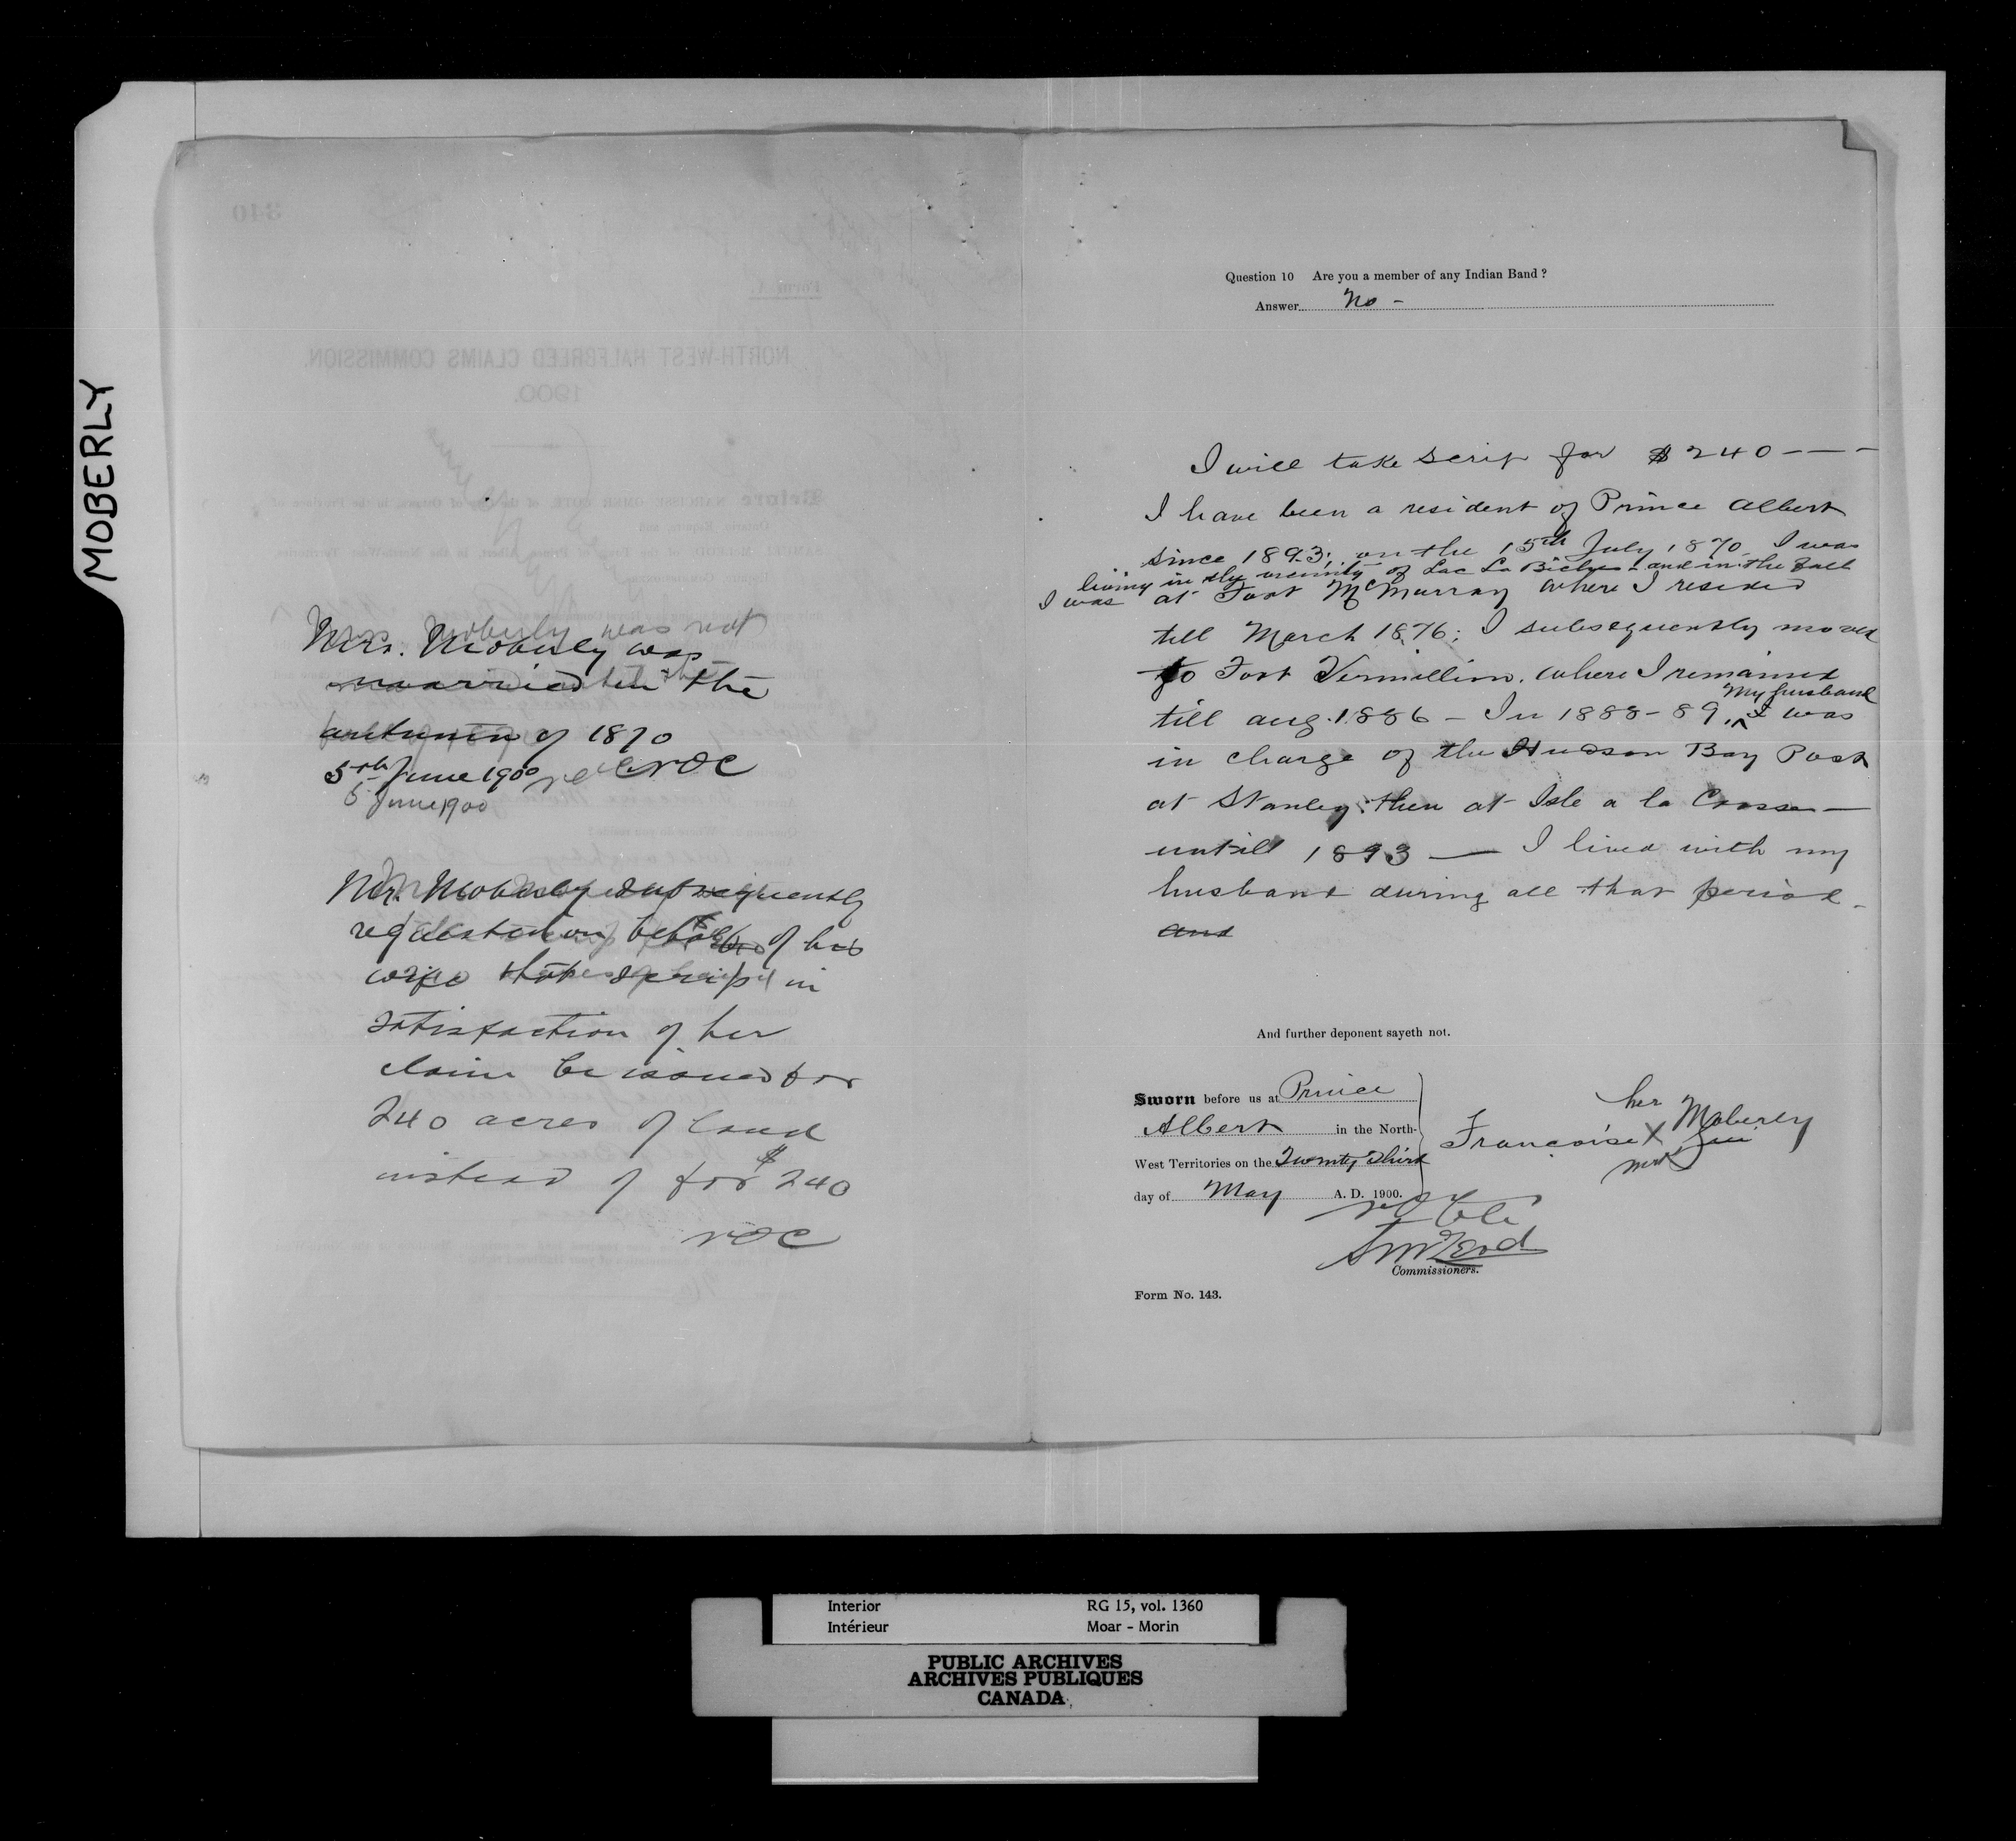 MOBERLY
Mrs. Moberly was not
Mrs. Moberly was
married in the
autumn of 1870
5th June 1900 NOC
5 June 1900
Mr. Moberly subsequently
requested on behalf of his
wife that scrip in
satisfaction of her
claim be issued for
240 acres of land
instead of for $240
NOC
340
Form A.
NORTH-WEST HALFBREED CLAIMS COMMISSION.
1900.
Question 10 Are you a member of any Indian Band ?
Answer No -
I will take scrip for $240 - - -
I have been a resident of Prince Albert
since 1893; on the 15th July 1870 I was
living in the vicinity of Lac La Biche - and in the Fall
I was at Fort McMurray where I resided
till March 1876; I subsequently moved
to Fort Vermillion. where I remained
till aug. 1886 - In 1888-89, My husband I was
in charge of the Hudson Bay Post
at Stanley: then at Isle a la Crosse —
untill 1893 — I lived with my
husband during all that period -
and
And further deponent sayeth not.
Sworn before us at Prince
Albert in the North-
West Territories on the Twenty Third
day of May A. D. 1900.
her
Francoise X Moberly
mark
N O Coté
S McLeod
Commissioners.
Form No. 143.
Interior RG 15, vol. 1360
Intérieur Moar - Morin
PUBLIC ARCHIVES
ARCHIVES PUBLIQUES
CANADA